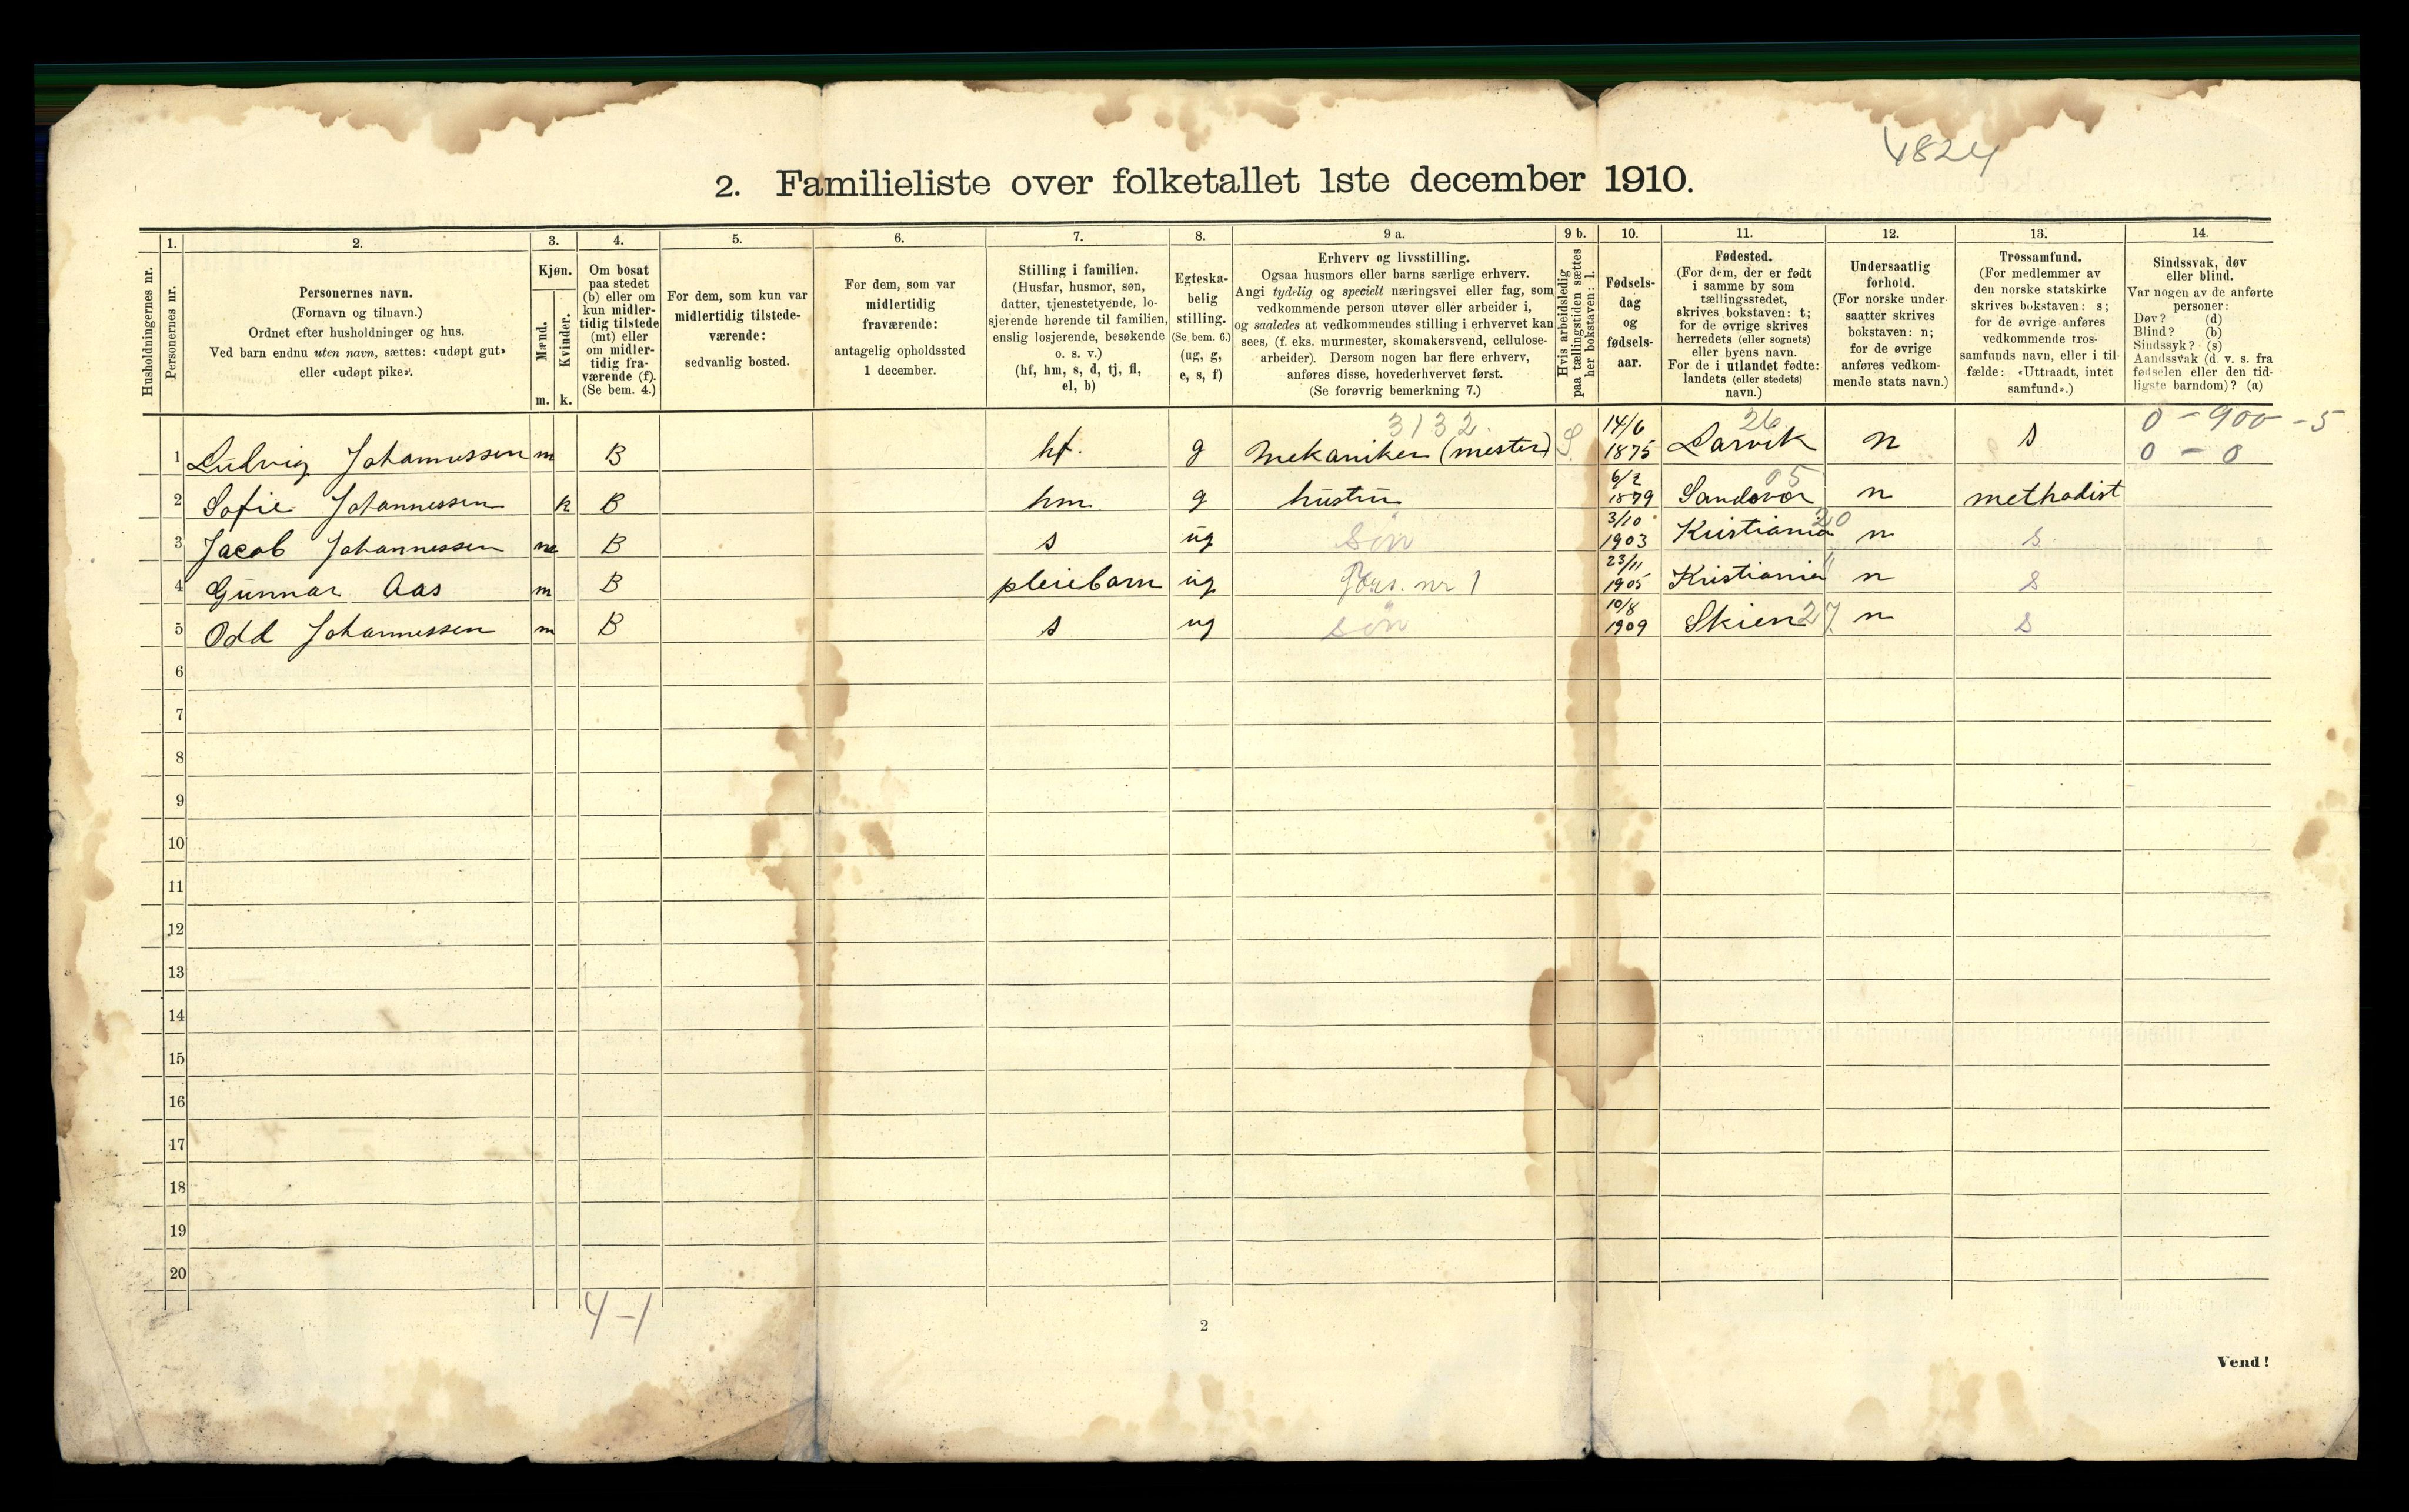 4824
2. Familieliste over folketallet 1ste december 1910.
Husholdningernes nr.
1.
Personernes nr.
2.
Personernes navn.
(Fornavn og tilnavn.)
Ordnet efter husholdninger og hus.
Ved barn endnu uten navn, sættes: «udøpt gut»
eller «udøpt pike».
3.
Kjøn.
Mænd.
Kvinder.
m. k.
4.
Om bosat
paa stedet
(b) eller om
kun midler-
tidig tilstede
(mt) eller
om midler-
tidig fra-
værende (f).
(Se bem. 4.)
5.
For dem, som kun var
midlertidig tilstede-
værende:
sedvanlig bosted.
6.
For dem, som var
midlertidig
fraværende:
antagelig opholdssted
1 december.
7.
Stilling i familien.
(Husfar, husmor, søn,
datter, tjenestetyende, lo-
sjerende hørende til familien,
enslig losjerende, besøkende
o. s. v.)
(hf, hm, s, d, tj, fl,
el, b)
8.
Egteska-
belig
stilling.
(Se bem. 6.)
(ug, g,
e, s, f)
9 a.
Erhverv og livsstilling.
Ogsaa husmors eller barns særlige erhverv.
Angi tydelig og specielt næringsvei eller fag, som
vedkommende person utøver eller arbeider i,
og saaledes at vedkommendes stilling i erhvervet kan
sees, (f. eks. murmester, skomakersvend, cellulose-
arbeider). Dersom nogen har flere erhverv,
anføres disse, hovederhvervet først.
(Se forøvrig bemerkning 7.)
9 b.
Hvis arbeidsledig
paa tællingstiden sættes
her bokstaven: l.
10.
Fødsels-
dag
og
fødsels-
aar.
11.
Fødested.
(For dem, der er født
i samme by som
tællingsstedet,
skrives bokstaven: t;
for de øvrige skrives
herredets (eller sognets)
eller byens navn.
For de i utlandet fødte:
landets (eller stedets)
navn.)
12.
Undersaatlig
forhold.
(For norske under-
saatter skrives
bokstaven: n;
for de øvrige
anføres vedkom-
mende stats navn.)
13.
Trossamfund.
(For medlemmer av
den norske statskirke
skrives bokstaven: s;
for de øvrige anføres
vedkommende tros-
samfunds navn, eller i til-
fælde: «Uttraadt, intet
samfund».)
14.
Sindssvak, døv
eller blind.
Var nogen av de anførte
personer:
Døv? (d)
Blind? (b)
Sindssyk? (s)
Aandssvak (d. v. s. fra
fødselen eller den tid-
ligste barndom)? (a)
3132. 26 0 - 900 - 5
1 Ludvig Johannessen m B hf. g Mekaniker (mester) S. 14/6 1875 Larvik n s 0 - 0
2 Sofie Johannessen k B hm g hustru 6/2 1879 Sandevær 05 n methodist
3 Jacob Johannessen m B s ug søn 3/10 1903 Kristiania 20 n s
4 Gunnar Aas m B pleiebarn ug nr 1 23/11 1905 Kristiania " n s
5 Odd Johannessen m B s ug søn 10/8 1909 Skien 27 n s
6
7
8
9
10
11
12
13
14
15
16
17
18
19
20
4-1
2
Vend!